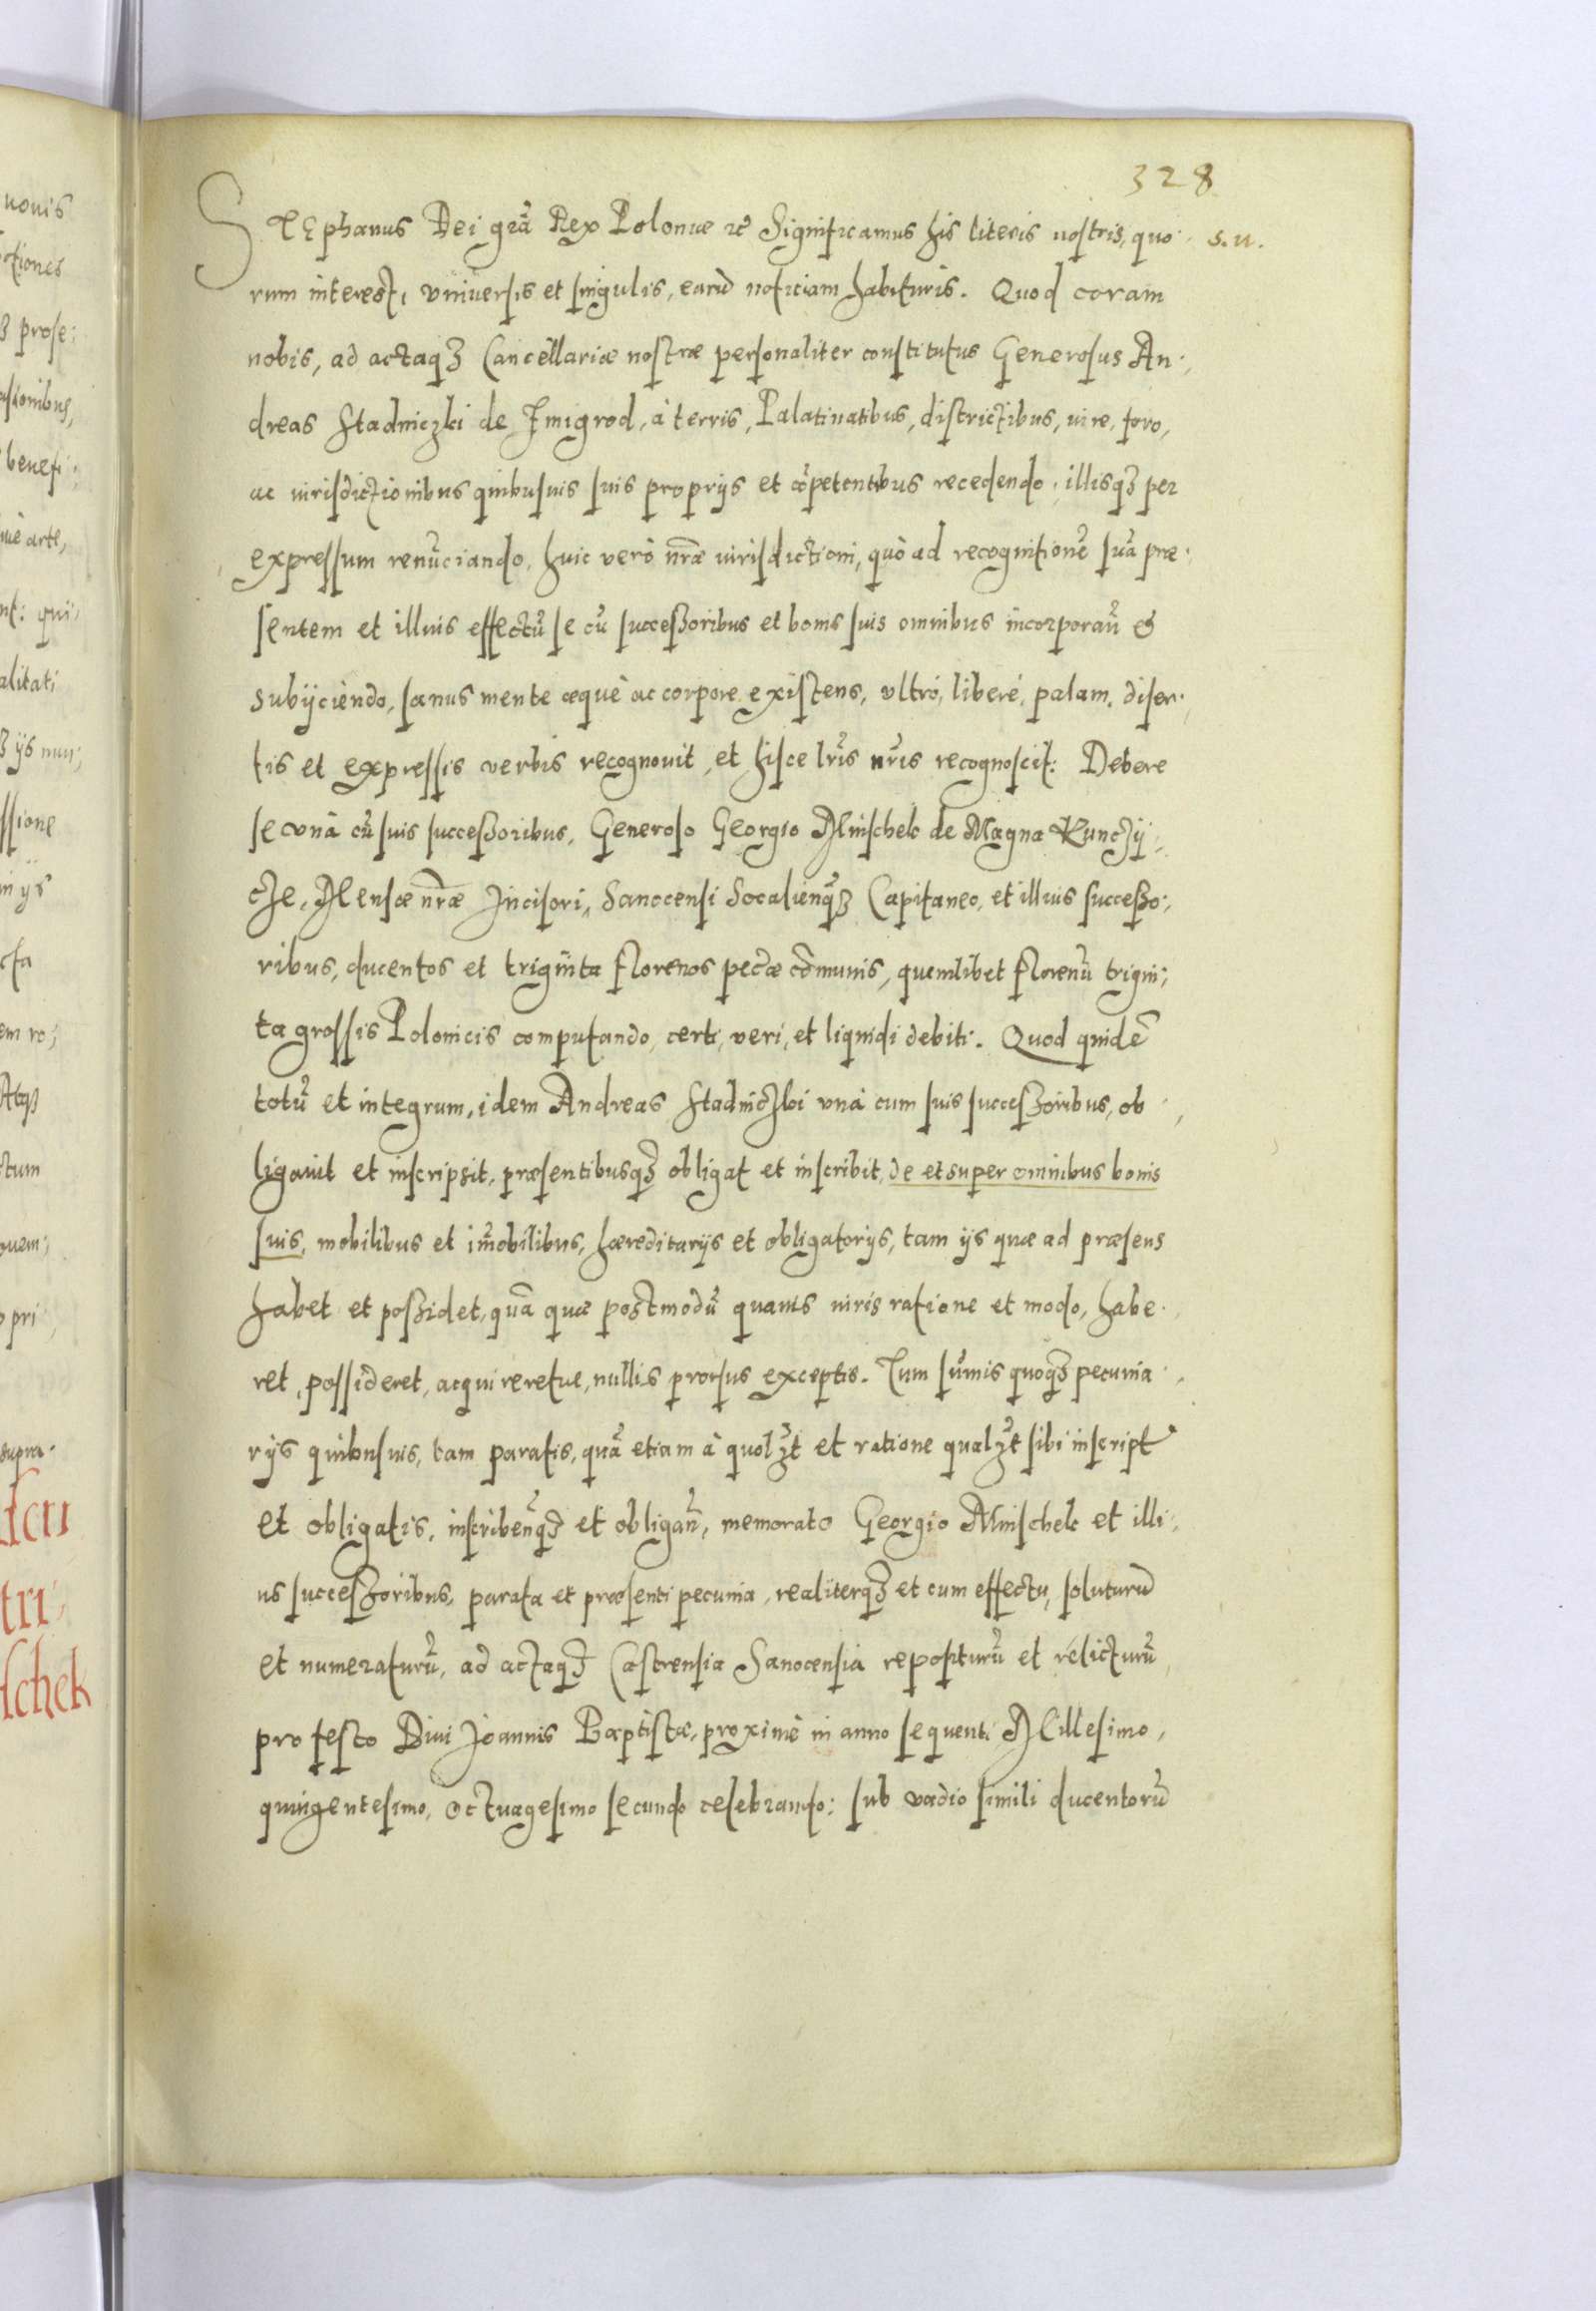 328
STEphanus Dei grã Rex Poloniæ &c̃ Significamus his literis nostris, quo: s. n.
rum interest, vniuersis et singulis, earũ noticiam habituris. Quod coram
nobis, ad actaqꝫ Cancellariæ nostræ personaliter constitutus Generosus An:
dreas Stadniczki de Zmigrod, à terris, Palatinatibus, districtibus, iure, foro,
ac iurisdictionibus quibusuis suis proprijs et cõpetentibus recedendo, illisqꝫ per
expressum renũciando, huic verò nr̃æ iurisdictioni, quò ad recognitionẽ suã præ:
sentem et illius effectũ se cũ successoribus et bonis suis omnibus incorporañ &
subijciendo, sanus mente æquè ac corpore existens, vltrò, liberè, palam, diser:
tis et expressis verbis recognouit, et hisce lr̃is nr̃is recognoscit: Debere
se vnà cũ suis successoribus, Generoso Georgio Mnischek de Magna Kunczy:
cze, Mensæ nr̃æ Incisori, Sanocensi Socalieñqꝫ Capitaneo, et illius successo:
ribus, ducentos et triginta florenos pecũæ cõmunis, quemlibet florenũ trigin:
ta grossis Polonicis computando, certi, veri, et liquidi debiti. Quod quidẽ
totũ et integrum, idem Andreas Stadniczki vnà cum suis successoribus, ob:
ligauit et inscripsit, præsentibusqꝫ obligat et inscribit, de et super omnibus bonis
suis, mobilibus et im̃obilibus, hæreditarijs et obligatorijs, tam ijs quæ ad præsens
habet et possidet, quã quæ postmodũ quauis iuris ratione et modo, habe:
ret, possideret, acquireretue, nullis prorsus exceptis. Tum sũmis quoqꝫ pecunia:
rijs quibusuis, tam paratis, quã etiam à quolꝫt et ratione qualꝫt sibi inscript
et obligatis, inscribeñqꝫ et obligañ, memorato Georgio Mnischek et illi:
us successoribus, parata et præsenti pecunia, realiterqꝫ et cum effectu, soluturũ
et numeraturũ, ad actaqꝫ Castrensia Sanocensia repositurũ et relicturũ,
pro festo Diui Joannis Baptistæ, proximè in anno sequenti Millesimo,
quingentesimo, octuagesimo secundo celebrando: sub vadio simili ducentorũ